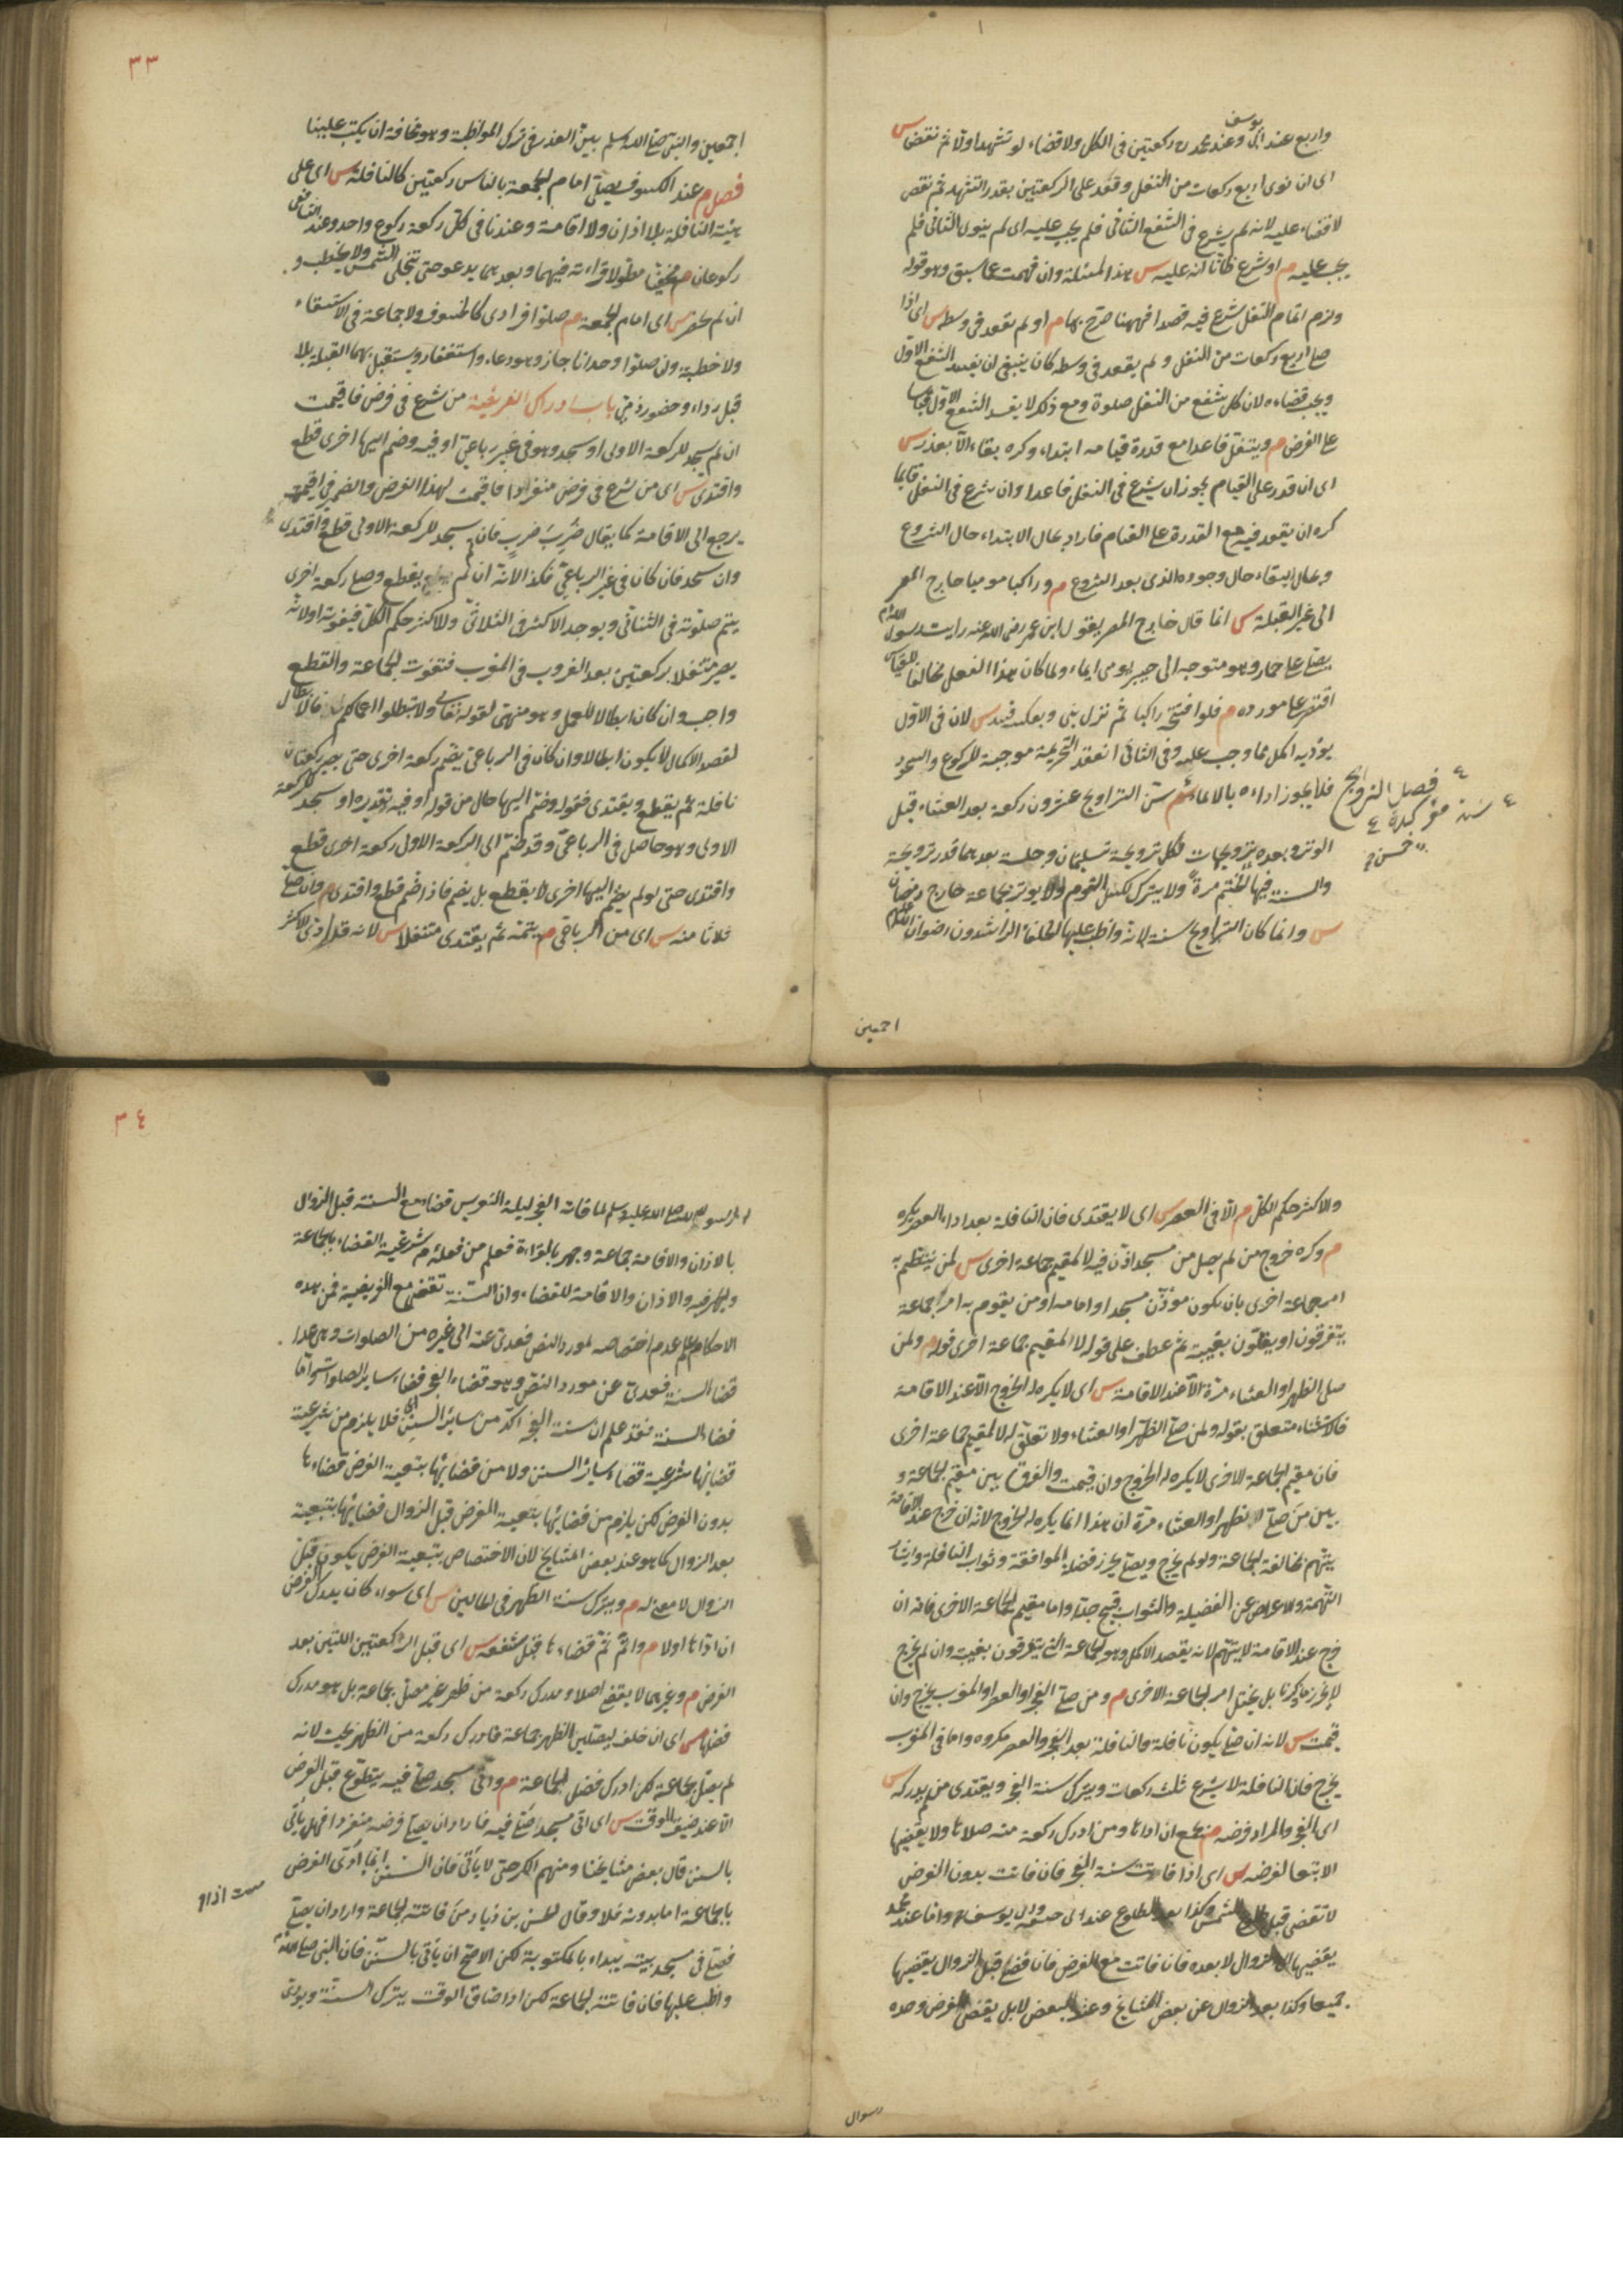 واربع عند ابى يوسف وعند محمد ركعتين فى الكل ولا قضاء لو تشهد اولا ثم نقض س
اى ان نوى اربع ركعات من النفل وقعد على الركعتين بقدر التشهد ثم نقض
لا قضاء عليه لانه لم يشرع فى الشفع الثانى فلم يجب عليه اى لم ينو الثانى فلم
يجب عليه م او شرع ظانا انه عليه س هذا المسئلة وان فهمت مما سبق وهو قوله
ولزم اتمام النفل شرع فيه قصدا فههنا صرح بها م او لم يقعد فى وسطه س اى اذا
صلى اربع ركعات من النفل ولم يقعد فى وسطه كان ينبغى ان يفسد الشفع الاول
ويجب قضاءه لان كل شفع من النفل صلوة ومع ذلك لا يفسد الشفع الاول قياسا
على الفرض م ويتنفل قاعدا مع قدرة قيامه ابتداء وكره بقاء الا بعذر س
اى ان قدر على القيام يجوز ان يشرع فى النفل قاعدا وان شرع فى النفل قائما
كره ان يقعد فيه مع القدرة على القيام فاراد بحال الابتداء حال الشروع
وبحال البقاء حال وجوده الذى بعد الشروع م وراكبا موميا خارج المصر
الى غير القبلة س انما قال خارج المصر لقول ابن عمر رضى الله عنه رايت رسول الله
يصلى على حمار وهو متوجه الى خيبر يومى ايماء ولما كان هذا الفعل مخالفا للقياس
اقتصر على مورده م فلو افتتح راكبا ثم نزل بنى وبعكسه فسد س لان فى الاول
يؤديه اكمل مما وجب عليه وفى الثانى انعقد التحريمة موجبة للركوع والسجود
فلا يجوز اداءه بالايماء م سن التراويح عشرون ركعة بعد العشاء قبل
فصل التراويح
سنة مؤكدة
الوتر وبعده ترويحات لكل ترويحة تسليمتان وجلسة بعدهما قدر ترويحة
والسنة فيها الختم مرة ولا يترك لكسل القوم ولا يوتر بجماعة خارج رمضان
س وانما كان التراويح سنة لانه واظب عليها الخلفاء الراشدون رضوان الله
اجمعين
٣٣
اجمعين والنبى صلى الله وسلم بين العذر فى ترك المواظبة وهو مخافة ان يكتب علينا
فصل م عند الكسوف يصلى امام الجمعة بالناس ركعتين كالنافلة س اى على
هيئة النافلة بلا اذان ولا اقامة وعندنا فى كل ركعة ركوع واحد وعند الشافعى
ركوعان م مخفيا مطولا قراءته فيهما وبعدهما يدعو حتى تنجلى الشمس ولا يخطب و
ان لم يحضر س اى امام الجمعة م صلوا فرادى كالخسوف ولا جماعة فى الاستسقاء
ولا خطبة وان صلوا وحدانا جاز وهو دعاء واستغفار ويستقبل بهما القبلة بلا
قبل رداء وحضور ذمى باب ادراك الفريضة من شرع فى فرض فاقيمت
ان لم يسجد للركعة الاولى او سجد وهو فى غير رباعى او فيه وضم اليها اخرى قطع
واقتدى س اى من شرع فى فرض منفردا فاقيمت لهذا الفرض والضمير فى اقيمت
يرجع الى الاقامة كما يقال ضرب ضرب فان لم يسجد للركعة الاولى قطع واقتدى
وان سجد فان كان فى غير الرباعى فكذا لانه ان لم يقطع وصلى ركعة اخرى
يتم صلوته فى الثنائى ويوجد الاكثر فى الثلاثى وللاكثر حكم الكل فيفوته اولانه
يصير متنفلا بركعتين بعد الغروب فى المغرب فتفوت الجماعة والقطع
واجب وان كان ابطالا للعمل وهو منهى لقوله تعالى ولا تبطلوا اعمالكم فالابطال
لقصد الاكمال لا يكون ابطالا وان كان فى الرباعى يضم ركعة اخرى حتى يصير ركعتان
نافلة ثم يقطع ويقتدى فقوله وضم اليها حال من قوله او فيه تقديره او سجد للركعة
الاولى وهو حاصل فى الرباعى وقد ضم الى الركعة الاولى ركعة اخرى قطع
واقتدى حتى لو لم يضم اليها اخرى لا يقطع بل يضم فاذا ضم قطع واقتدى م وان صلى
ثلاثا منه س اى من الرباعى م يتمه ثم يقتدى متنفلا س لانه قد ادى الاكثر
والاكثر حكم الكل م الا فى العصر س اى لا يقتدى فان النافلة بعد اداء العصر يكره
م وكره خروج من لم يصل من مسجد اذن فيه لا لمقيم جماعة اخرى س لمن ينتظم به
امر جماعة اخرى بان يكون مؤذن مسجد او امامه او من يقوم به امر الجماعة
يتفرقون او يقلون بغيبته ثم عطف على قوله لا لمقيم جماعة اخرى قوله م ولمن
صلى الظهر او العشاء مرة الا عند الاقامة س اى لا يكره له الخروج الا عند الاقامة
فالاستثناء متعلق بقوله ولمن صلى الظهر او العشاء ولا تعلق له لا لمقيم جماعة اخرى
فان مقيم الجماعة الاخرى لا يكره له الخروج وان قيمت والفرق بين مقيم الجماعة و
بين من صلى الظهر او العشاء مرة ان هذا انما يكره له الخروج لانه ان خرج عند الاقامة
يتهم بمخالفة الجماعة ولو لم يخرج ويصلى يحرز فضيلة الموافقة وثواب النافلة وايثار
التهمة والاعراض عن الفضيلة والثواب قبيح جدا واما مقيم الجماعة الاخرى فانه ان
خرج عند الاقامة لا يتهم لانه يقصد الاكمل وهو الجماعة التى يتفرقون بغيبته وان لم يخرج
لا يحرز ما ذكرنا بل يختل امر الجماعة الاخرى م ومن صلى الفجر او العصر او المغرب يخرج وان
قيمت س لانه ان صلى يكون نافلة والنافلة بعد الفجر والعصر مكروه واما فى المغرب
يخرج فان النافلة لا يشرع ثلث ركعات ويترك سنة الفجر ويقتدى من لم يدركه س
اى الفجر والمراد فرضه م بجمع ان اداها ومن ادرك ركعة منه صلاها ولا يقضيها
الا بتبعا لفرضه س اى اذا فاتت سنة الفجر فان فاتت بدون الفرض
لا تقضى قبل طلوع الشمس وكذا بعد الطلوع عند ابى حنيفة وابى يوسف واما عند محمد
يقضيها الى الزوال لا بعده فان فاتت مع الفرض فان قضى قبل الزوال يقضيها
جميعا وكذا بعد الزوال عن بعض المشايخ وعند البعض لا بل يقضى الفرض وحده
رسول
٣٤
رسول الله صلى الله عليه وسلم لما فاته الفجر ليلة التعريس قضاه مع السنة قبل الزوال
بالاذان والاقامة جماعة وجهر بالقراءة فعلم من فعله م شرعية القضاء بالجماعة
والجهر فيه والاذان والاقامة للقضاء وان السنة تقضى مع الفريضة فمن هذه
الاحكام علم عدم اختصاصه لمورد النص فعدى عنه الى غيره من الصلوات وهى هذا
قضاء السنة فعدى عن مورد النص وهو قضاء الفجر قضاء ساير الصلوات واما
قضاء السنة فقد علم ان سنة الفجر اكد من سائر السنن فلا يلزم من شرعية
قضائها شرعية قضاء سائر السنن ولا من قضائها بتبعية الفرض قضاءها
بدون الفرض لكن يلزم من قضائها بتبعية الفرض قبل الزوال قضائها بتبعية
بعد الزوال كما هو عند بعض المشايخ لان الاختصاص بتبعية الفرض يكون قبل
الزوال لا معنى له م ويترك سنة الظهر فى الحالين س اى سواء كان يدرك الفرض
ان اداها اولا م وائتم ثم قضاءها قبل شفعه س اى قبل الركعتين اللتين بعد
الفرض م وغيرهما لا يقضى اصلا ومدرك ركعة من ظهر غير مصل بجماعة بل هو مدرك
فضلها س اى ان حلف ليصلين الظهر جماعة فادرك ركعة من الظهر يحنث لانه
لم يصل بجماعة لكن ادرك فضل الجماعة م واتى مسجد صلى فيه يتطوع قبل الفرض
الا عند ضيق الوقت س اى اتى مسجد صلى فيه فاراد ان يصلى فرضه منفردا فهل يأتى
بالسنن قال بعض مشايخنا ومنهم الكرخى لا يأتى فان السنن انما اذا ادى الفرض
بالجماعة اما بدونه فلا وقال الحسن بن زياد من فاتته الجماعة واراد ان يصلى
فصلى فى مسجد بيته يبداء بالمكتوبة لكن الاصح ان يأتى بالسنن فان النبى صلى الله
واظب عليها فان فاتته الجماعة لكن اذا ضاق الوقت يترك السنة ويؤدى